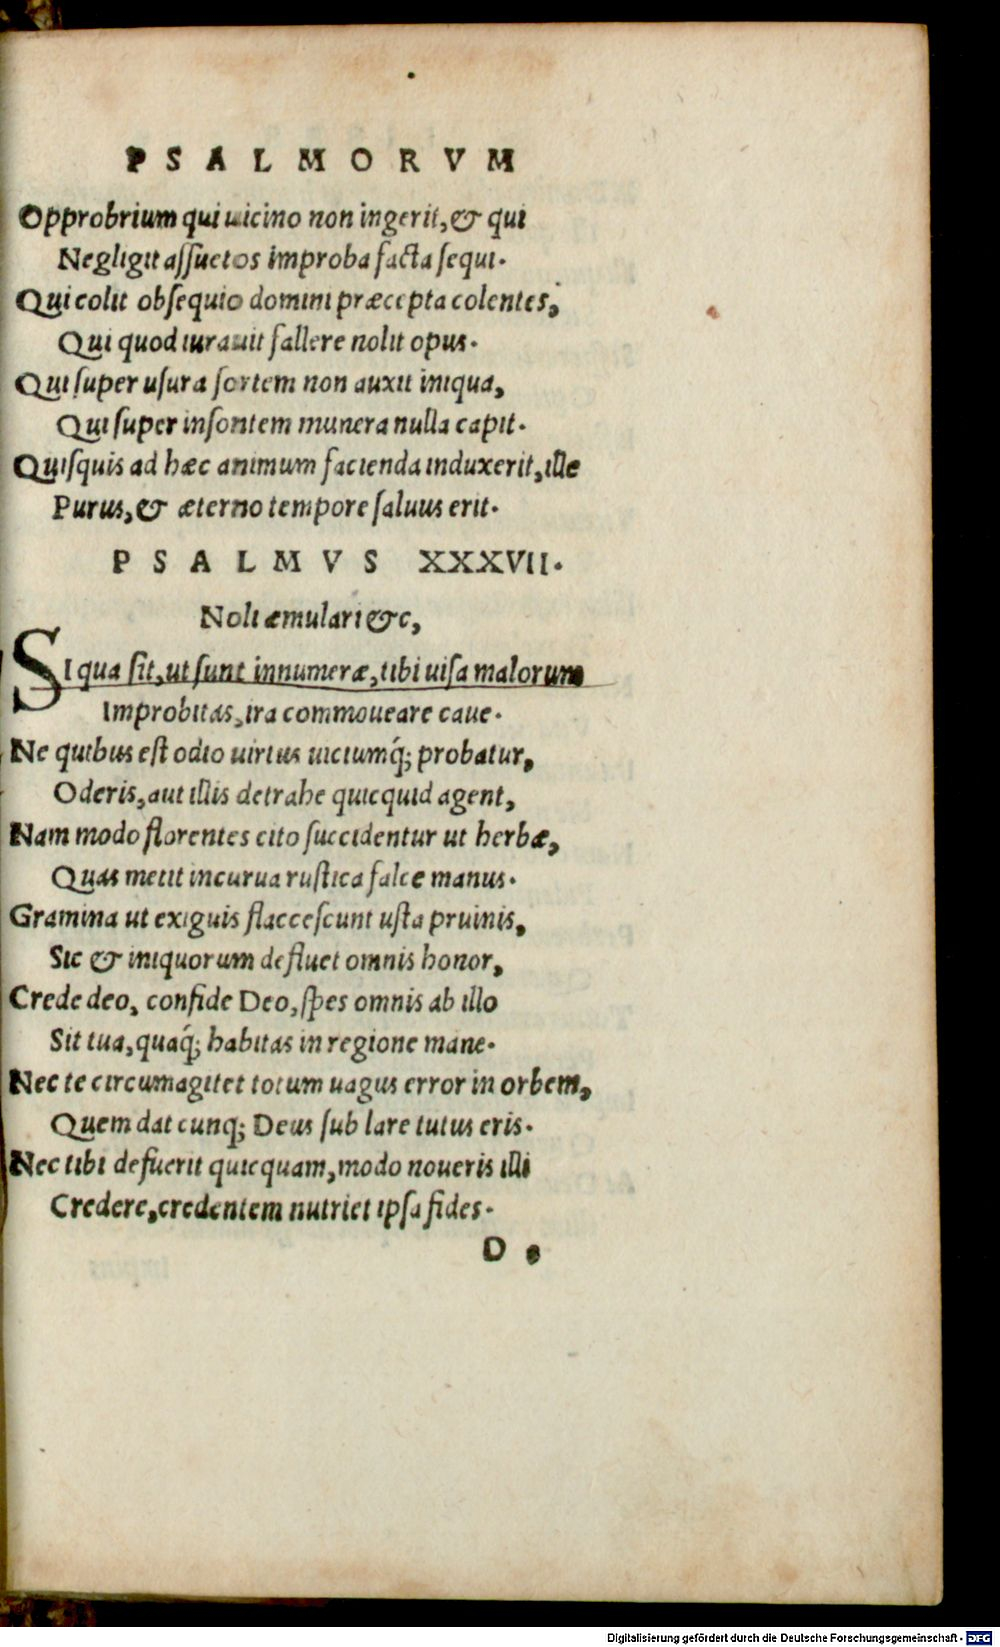 PSALMORVM
Opprobrium qui uicino non ingerit, & qui
Negligit assuetos improba facta sequi.
Qui colit obsequio domini præcepta colentes,
Qui quod iurauit fallere nolit opus.
Qui super usura sortem non auxit iniqua,
Qui super insontem munera nulla capit.
Quisquis ad hæc animum facienda induxerit, ille
Purus, & æterno tempore saluus erit.
PSALMVS XXXVII.
Noli æmulari &c,
SI qua sit, ut sunt innumeræ, tibi uisa malorum
Improbitas, ira commoueare caue.
Ne quibus est odio uirtus uiciumq́; probatur,
Oderis, aut illis detrahe quicquid agent,
Nam modo florentes cito succidentur ut herbæ,
Quas metit incurua rustica falce manus.
Gramina ut exiguis flaccescunt usta pruinis,
Sic & iniquorum defluet omnis honor,
Crede deo, confide Deo, spes omnis ab illo
Sit tua, quaq́; habitas in regione mane.
Nec te circumagitet totum uagus error in orbem,
Quem dat cunq; Deus sub lare tutus eris.
Nec tibi defuerit quicquam, modo noueris illi
Credere, credentem nutriet ipsa fides.
D e
Digitalisierung gefördert durch die Deutsche Forschungsgemeinschaft - DFG